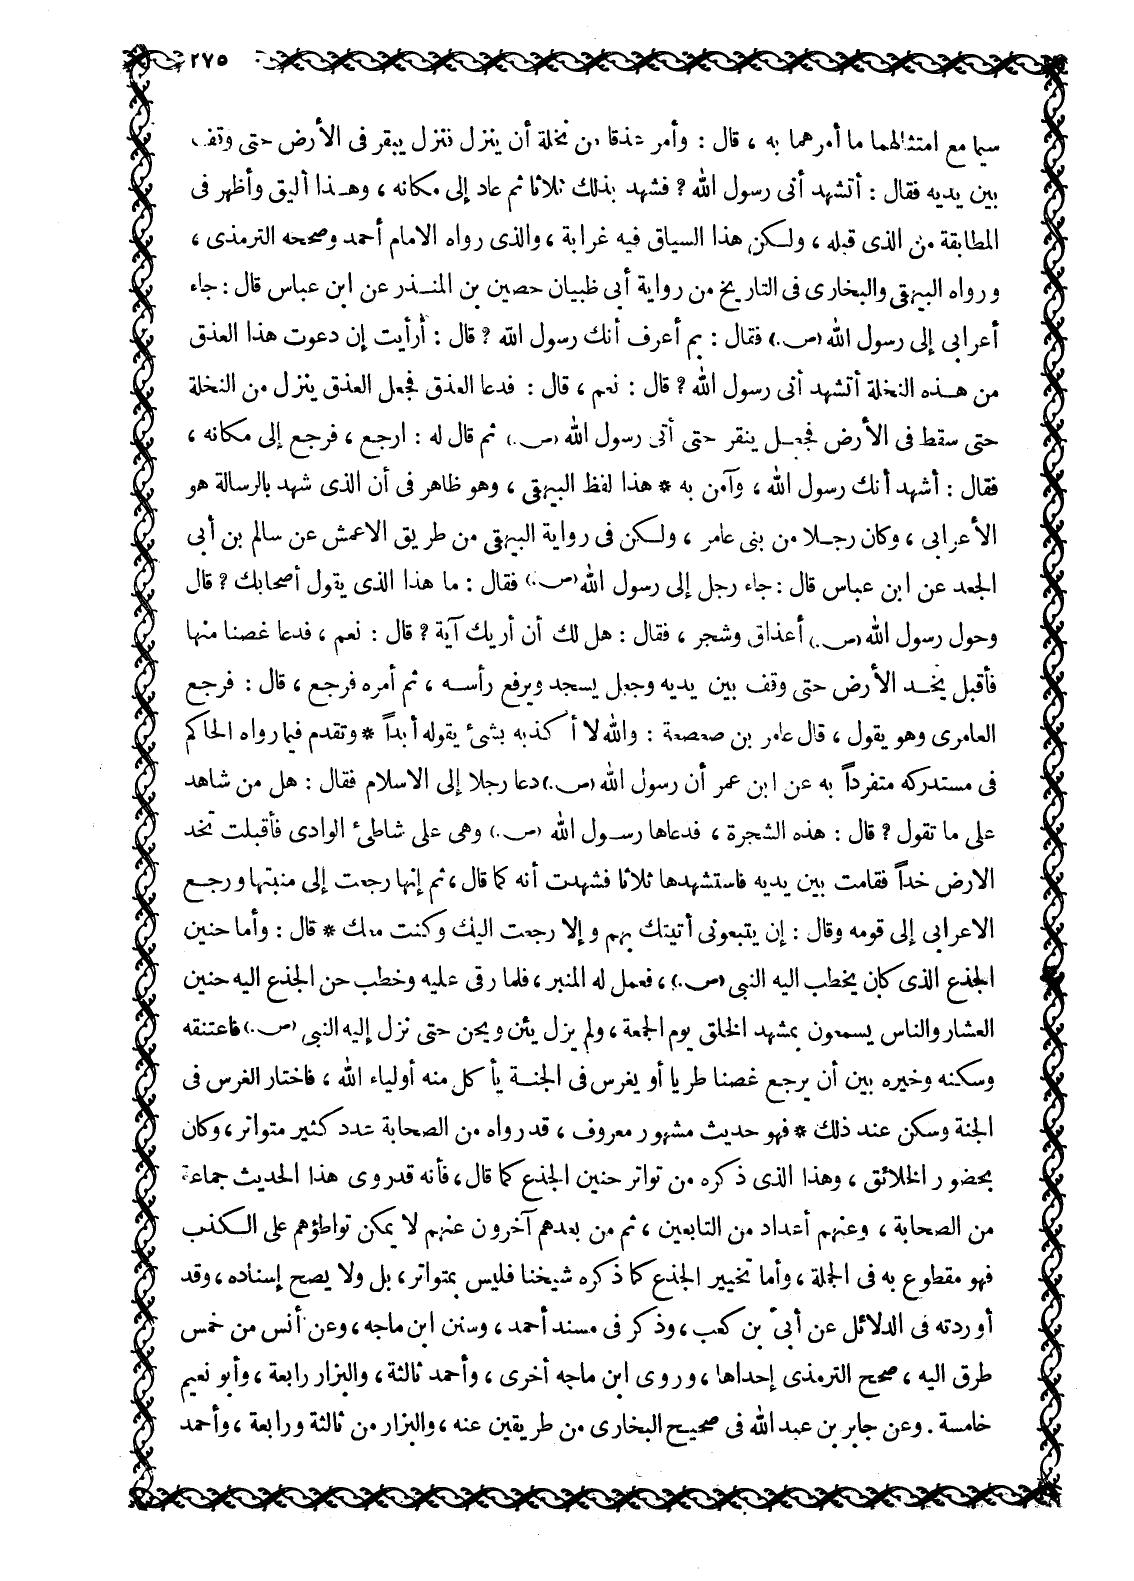 ٢٧٥
سيما مع امتثالهما ما أمرهما به ، قال : وأمر عذقا من نخلة أن ينزل فنزل يبقر فى الأرض حتى وقف
بين يديه فقال : أتشهد أنى رسول الله ? فشهد بذلك ثلاثا ثم عاد إلى مكانه ، وهـذا أليق وأظهر فى
المطابقة من الذى قبله ، ولـكن هذا السياق فيه غرابة ، والذى رواه الامام أحمد وصححه الترمذى ،
ورواه البيهقى والبخارى فى التاريخ من رواية أبى ظبيان حصين بن المنـذر عن ابن عباس قال : جاء
أعرابى إلى رسول الله (ص.) فقال : بم أعرف أنك رسول الله ? قال : أرأيت إن دعوت هذا العذق
من هـذه النخلة أتشهد أنى رسول الله ? قال : نعم ، قال : فدعا العذق فجعل العذق ينزل من النخلة
حتى سقط فى الأرض فجعـل ينقر حتى أتى رسول الله (ص.) ثم قال له : ارجع ، فرجع إلى مكانه ،
فقال : أشهد أنك رسول الله ، وآمن به * هذا لفظ البيهقى ، وهو ظاهر فى أن الذى شهد بالرسالة هو
الأعرابى ، وكان رجـلا من بنى عامر ، ولـكن فى رواية البيهقى من طريق الاعمش عن سالم بن أبى
الجعد عن ابن عباس قال : جاء رجل إلى رسول الله (ص.) فقال : ما هذا الذى يقول أصحابك ? قال
وحول رسول الله (ص.) أعذاق وشجر ، فقال : هل لك أن أريك آية ? قال : نعم ، فدعا غصنا منها
فأقبل يخـد الأرض حتى وقف بين يديه وجعل يسجد ويرفع رأسـه ، ثم أمره فرجع ، قال : فرجع
العامرى وهو يقول ، قال عامر بن صعصعة : والله لا أكذبه بشئ يقوله أبداً * وتقدم فيما رواه الحاكم
فى مستدركه متفرداً به عن ابن عمر أن رسول الله (ص.) دعا رجلا إلى الاسلام فقال : هل من شاهد
على ما تقول ? قال : هذه الشجرة ، فدعاها رسـول الله (ص.) وهى على شاطئ الوادى فأقبلت تخد
الارض خداً فقامت بين يديه فاستشهدها ثلاثا فشهدت أنه كما قال ، ثم إنها رجعت إلى منبتها ورجـع
الاعرابى إلى قومه وقال : إن يتبعونى أتيتك بهم وإلا رجعت اليك وكنت معك * قال : وأما حنين
الجذع الذى كان يخطب اليه النبى (ص.) ، فعمل له المنبر ، فلما رقى عليه وخطب حن الجذع اليه حنين
العشار والناس يسمعون بمشهد الخلق يوم الجمعة ، ولم يزل يئن ويحن حتى نزل إليه النبى (ص.) فاعتنقه
وسكنه وخيره بين أن يرجع غصنا طريا أو يغرس فى الجنـة يأكل منه أولياء الله ، فاختار الغرس فى
الجنة وسكن عند ذلك * فهو حديث مشهور معروف ، قد رواه من الصحابة عدد كثير متواتر ، وكان
بحضور الخلائق ، وهذا الذى ذكره من تواتر حنين الجذع كما قال ، فأنه قد روى هذا الحديث جماعة
من الصحابة ، وعنهم أعداد من التابعين ، ثم من بعدهم آخرون عنهم لا يمكن تواطؤهم على الـكذب
فهو مقطوع به فى الجملة ، وأما تخيير الجذع كما ذكره شيخنا فليس بمتواتر ، بل ولا يصح إسناده ، وقد
أوردته فى الدلائل عن أبىّ بن كعب ، وذكر فى مسند أحمد ، وسنن ابن ماجه ، وعن أنس من خمس
طرق اليه ، صحح الترمذى إحداها ، وروى ابن ماجه أخرى ، وأحمد ثالثة ، والبزار رابعة ، وأبو نعيم
خامسة . وعن جابر بن عبد الله فى صحيح البخارى من طريقين عنه ، والبزار من ثالثة ورابعة ، وأحمد